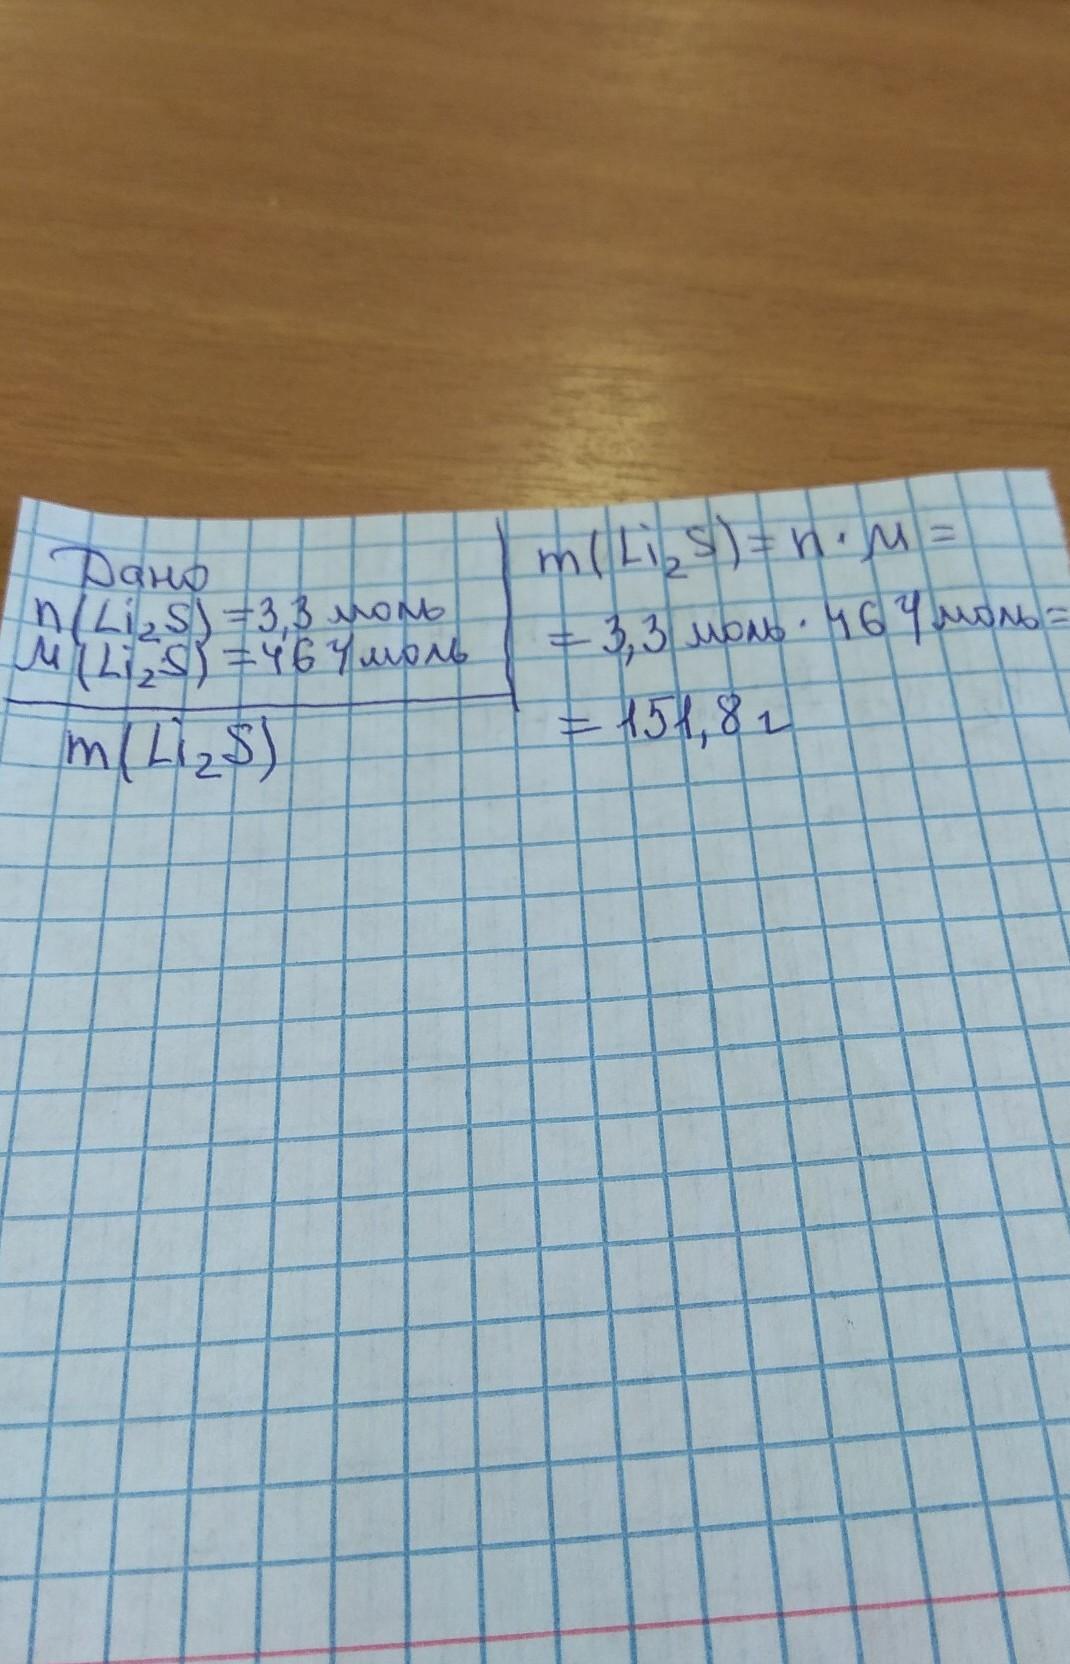 Дано
n(Li₂S) = 3,3 моль
M(Li₂S) = 46 г/моль
m(Li₂S)
m(Li₂S) = n · M =
= 3,3 моль · 46 г/моль =
= 151,8 г